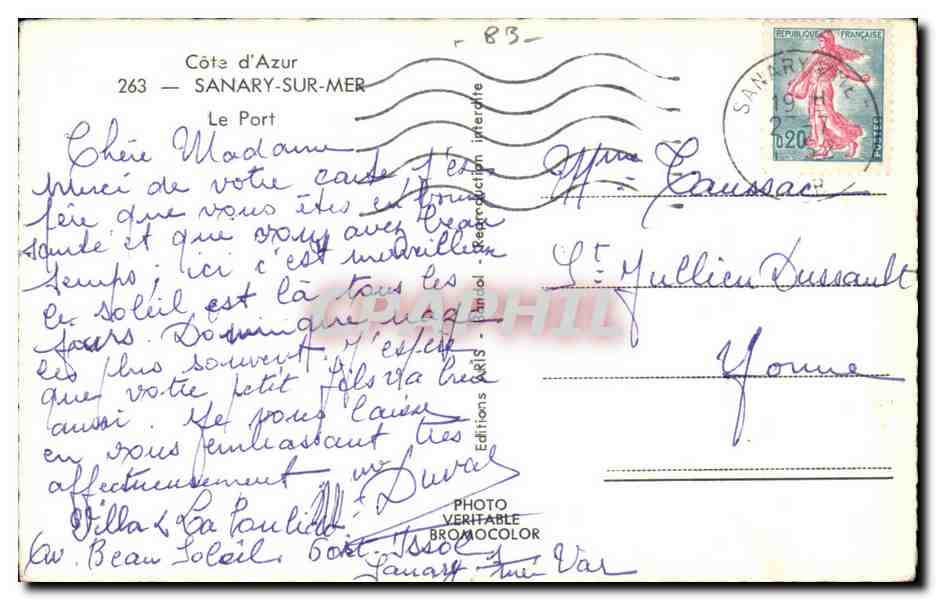 - 83 -
Côte d'Azur
263 — SANARY-SUR-MER
Le Port
Chère Madame
Merci de votre carte j'es-
père que vous êtes en bonne
santé et que vous avez beau
temps; ici c'est merveilleux
le soleil est là tous les
jours. Dominique nage
les plus souvent. J'espère
que votre petit fils va bien
aussi. Je vous laisse
en vous embrassant très
affectueusement
Mme Duval
Villa La
Av. Beau Soleil. Port Issol
Sanary s/mer Var
Editions ARIS - Bandol - Reproduction interdite
PHOTO
VERITABLE
BROMOCOLOR
REPUBLIQUE FRANÇAISE
0,20
POSTES
SANARY
19 H
Mme Taussac
St. Jullien Dussault
Yonne
CPAPHIL